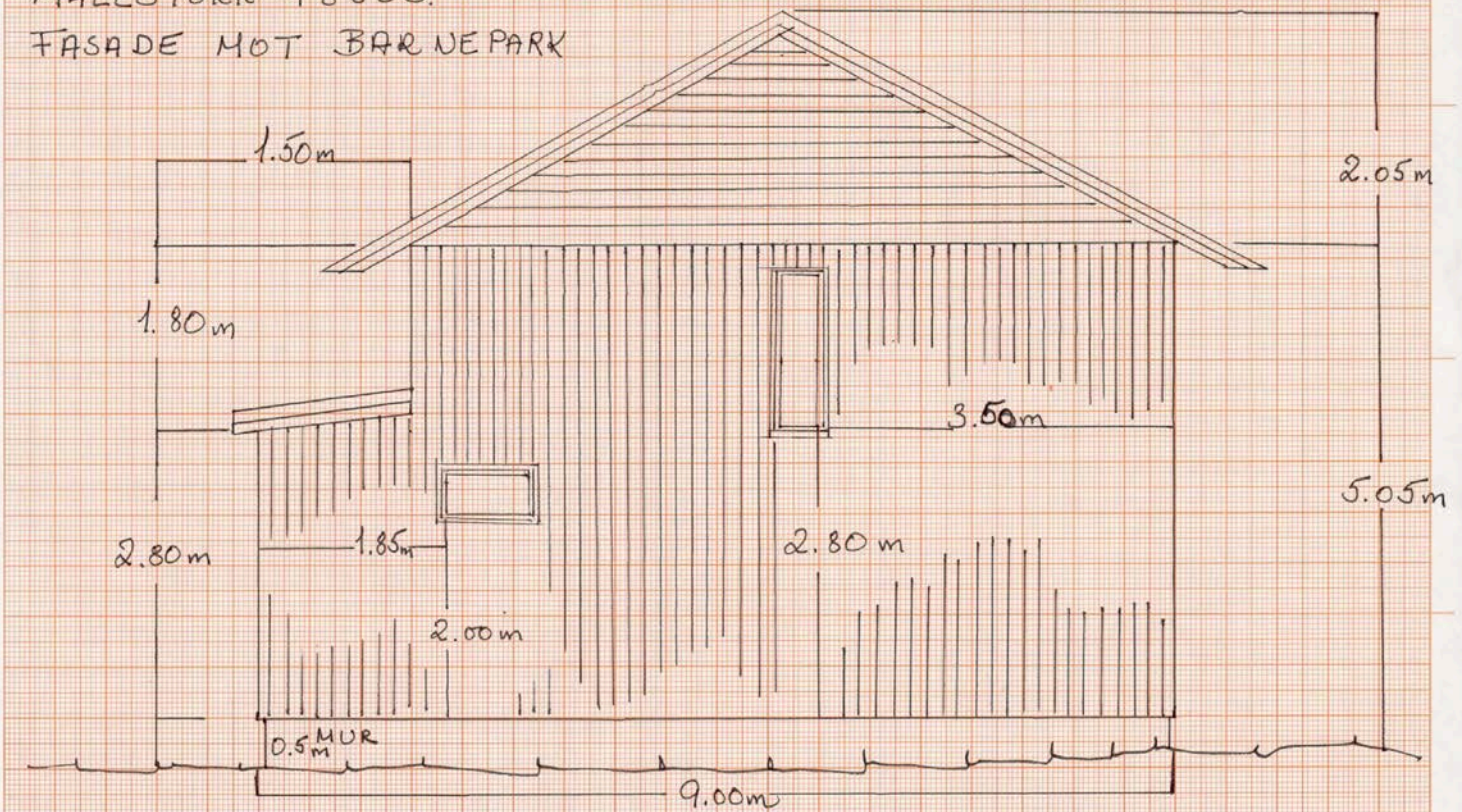 FASADE MOT BARNEPARK
1.50m
2.05m
1.80m
3.50m
5.05m
2.80m
1.85m
2.80m
2.00m
0.5m MUR
9.00m